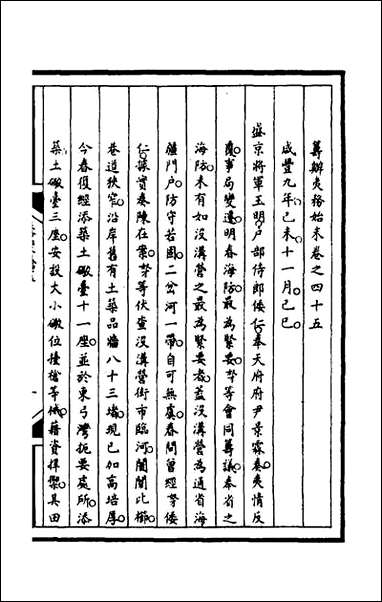 籌辦夷務始末卷之四十五
咸豐九年己未十一月己巳
盛京將軍玉明戶部侍郎倭仁奉天府府尹景霖奏夷情反
覆事局變遷明春海防最為緊要奴才等會同籌議奉省之
海防未有如沒溝營之最為緊要者蓋沒溝營為通省海
疆門戶防守若固二岔河一帶自可無虞春間曾經奴才倭
仁據實奏陳在案奴才等伏查沒溝營街市臨河闤闠比櫛
巷道狹窄沿岸舊有土築品牆八十三堵現已加高培厚
今春復經添築土礮臺十一座並於東弓灣扼要處所添
築土礮臺三座安設大小礮位擡槍等械藉資捍禦其田